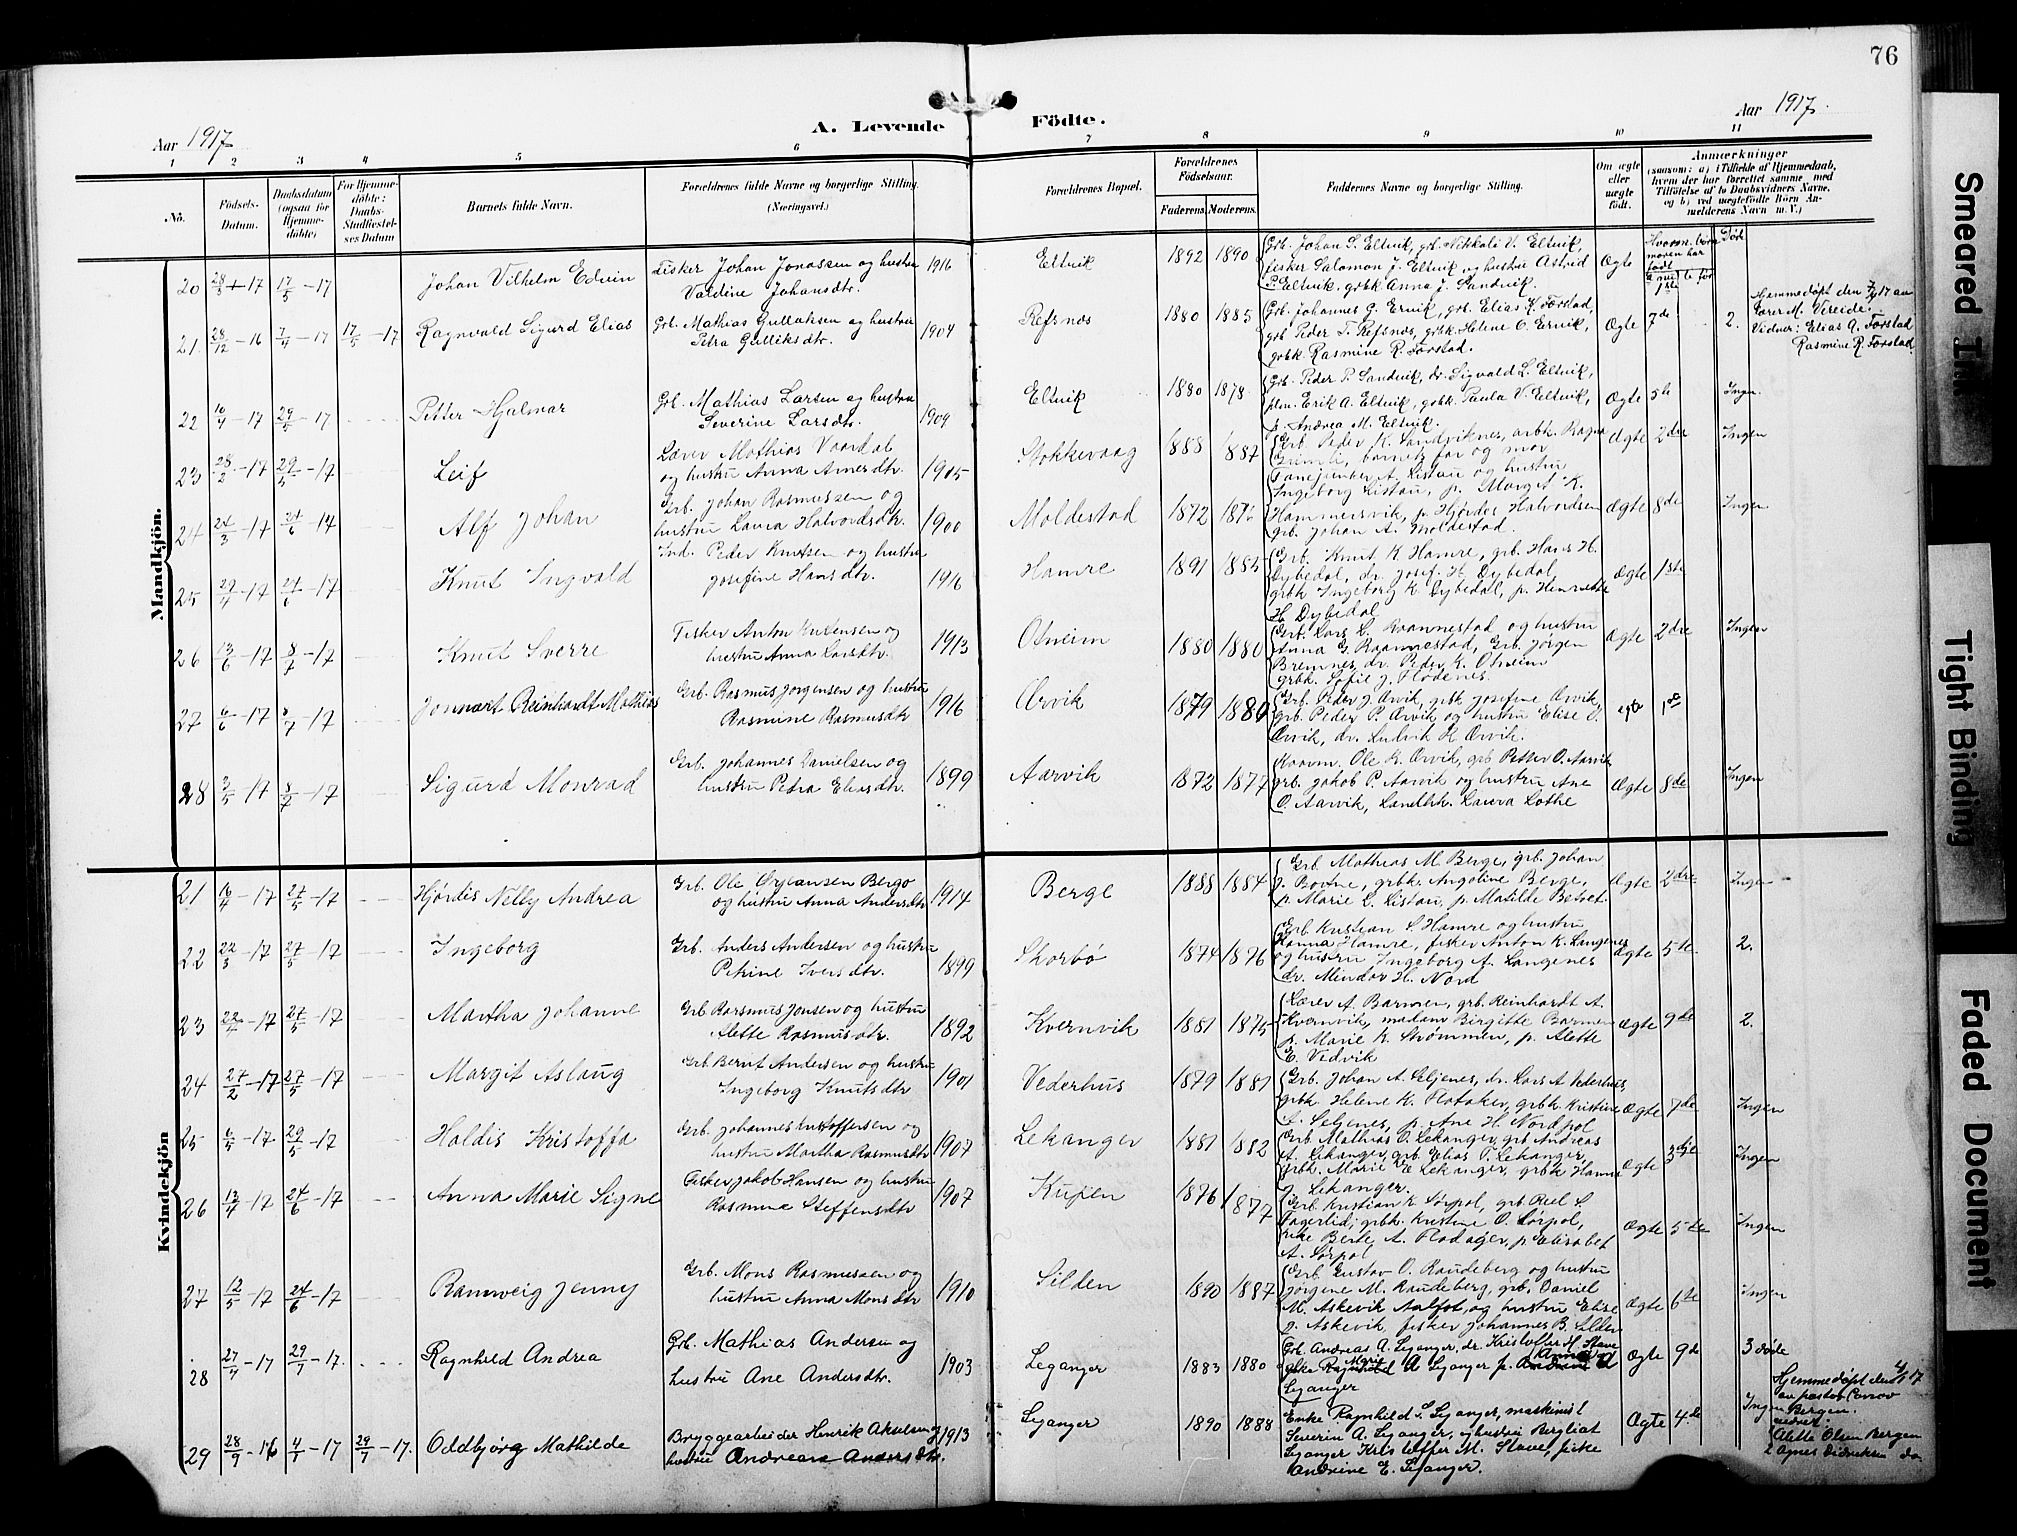 76
Aar 1917.
A. Levende
Födte.
Aar 1917.
1 2 3 4 5 6 7 8 9 10 11
No.
Födsels-Datum.
Daabsdatum (ogsaa for Hjemmedöbte)
For Hjemmedöbte: Daabs-Stadfæstelses Datum
Barnets fulde Navn.
Forældrenes fulde Navne og borgerlige Stilling.
(Næringsvei.)
Forældrenes Bopæl.
Forældrenes Födselsaar.
Faderens. Moderens.
Faddernes Navne og borgerlige Stilling.
Om ægte eller uægte født.
Anmærkninger
(saasom: a) i Tilfælde af Hjemmedaab,
hvem der har forrettet samme, med
Tilföielse af to Daabsvidners Navne,
og b) ved uægtefödte Börn An-
melderens Navn m. V.)
Mandkjön.
20 28/3 - 17 17/5 - 17 Johan Vilhelm Edvin Fisker Johan Jonassen og hustru 1916 Eltvik 1892 1890 Grb. Johan S. Eltvik, grb. Nikkoli V. Eltvik, Ægte
Valdine Johansdtr. fisker Salomon J. Eltvik og hustru Astrid
S. Eltvik, grbk. Anna J. Sandvik.
21 28/12 - 16 7/4 - 17 17/5 - 17 Ragnvald Sigurd Elias Grb. Mathias Gulliksen og hustru 1904 Refsnæs 1880 1885 Grb. Johannes G. Ervik, grb. Elias K. Førstad, Ægte 7de 2. Hjemmedøpt den 7/4 17 av
Petra Gulliksdtr. grb Peder T. Refsnæs, grbk. Helene O. Ervik, Lærer M. Vereide.
grbk. Rasmine R. Førstad. Vidner: Elias A. Førstad
Rasmine R. Førstad.
22 10/4 - 17 29/5 - 17 Petter Hjalmar Grb. Mathias Larsen og hustru 1904 Eltvik 1880 1878 Grb. Peder P. Sandvik, dr. Sigvald L. Eltvik, Ægte 5te Ingen.
Severine Larsdtr. Erik A. Eltvik, grbk. Paula V. Eltvik,
p. Andrea M. Eltvik.
23 28/2 - 17 29/5 - 17 Leif Lærer Mathias Vaardal 1905 Stokkevaag 1888 1887 Grb. Peder K. Sandviknes, grbk. Ragna Ægte 2dre Ingen
og hustru Anna Arnesdtr. barnets far og mor
A. Listau og hustru
24 24/3 - 17 24/6 - 17 Alf Johan Grb. Johan Rasmussen og 1900 Moldestad 1872 1876 Ingeborg Listau, p. Margit K. Ægte 8de Ingen
hustru Laura Halvordsdtr. Hammersvik, p. Hjørdis Halvordsen
grb. Johan A. Moldestad.
25 29/4 - 17 24/6 - 17 Knut Ingvald Ind. Peder Knutsen og hustru 1916 Hamre 1891 1885 Grb. Knut K. Hamre, grb. Hans H. Ægte 1ste
Josefine Hansdtr. Dybedal, dr. Josef H. Dybedal
grbk Ingeborg K. Dybedal, p. Henriette
H. Dybedal
26 13/6 - 17 8/7 - 17 Knut Sverre Fisker Anton Knutensen og 1913 Otneim 1880 1880 Grb. Lars L. Raamestad og hustru Ægte 2dre Ingen
hustru Anna Larsdtr. Anna G. Raamestad, Grb. Jørgen
Bremnes, dr. Peder K. Otneim
grbk. Sofie J. Flodenes.
27 6/6 - 17 8/7 - 17 Jonnart Reinhardt Mathias Grb. Rasmus Jørgensen og hustru 1916 Ørvik 1879 1880 Grb. Peder J. Ørvik, grbk Josefine Ørvik, 
Rasmine Rasmusdtr grb. Peder P. Ørvik og hustru Elise
Ørvik, dr. Ludvik K. Ørvik.
28 3/5 - 17 8/7 - 17 Sigurd Monrad Grb. Johannes Danielsen og 1899 Aarvik 1872 1877 Ole K. Ørvik, grb Petter O. Aarvik Ægte 8de Ingen
hustru Petra Eliasdtr. grb. Jakob P. Aarvik og hustru Ane
O. Aarvik, Laura Lothe
Kvindekjön
21 16/4 - 17 27/5 - 17 Hjørdis Nelly Andrea Grb. Ole Ørjansen Berge 1914 Berge 1888 1884 Grb. Mathias M. Berge, grb. Johan Ægte 2dre Ingen
og hustru Anna Andersdtr J. Bovne, grbk. Angoline Berge,
p. Marie L. Listau, p. Matilde Betset.
22 22/3 - 17 27/5 - 17 Ingeborg Grb. Anders Andersen og hustru 1899 Skorbø 1874 1876 Grb Kristian S. Hamre og hustru Ægte 5te 2.
Petrine Iversdtr. Hanna Hamre, fisker Anton K. Langenes
og hustru Ingeborg A. Langenes
dr. Mindor H. Nord
23 22/4 - 17 27/5 - 17 Martha Johanne Grb Rasmus Jensen og hustru 1892 Kvernvik 1881 1875 Lærer A. Barmen, grb. Reinhardt A. Ægte 9de 2.
Alette Rasmusdtr. Kvernvik, madam Birgitte Barmen
p. Marie K. Strømmen, p. Alette
E. Vedvik
24 27/2 - 17 27/5 - 17 Margit Aslaug Grb. Bernt Andersen og hustru 1901 Vederhus 1879 1881 Grb. Johan A. Seljenes, dr. Lars A. Vederhus, Ægte 7de Ingen
Ingeborg Knutsdtr grbk. Helene K. Flotaker, grbk. Kristine
L. Seljenes, p. Ane H. Nordpol
25 6/5 - 17 29/5 - 17 Haldis Kristoffa Grb. Johannes Kristoffersen og 1907 Lekanger 1881 1882 Grb Mathias O. Lekanger, grb Andreas Ægte 3dje Ingen
hustru Martha Rasmusdtr A. Lekanger, grb Elias P. Lekanger,
grbk. Marie E. Lekanger, grbk. Hanna
J. Lekanger.
26 13/4 - 17 24/6 - 17 Anna Marie Signe Fisker Jakob Hansen og hustru 1907 Kupen 1876 1877 Grb. Kristian K. Sørpol, grb Ægte 5te Ingen
Rasmine Steffensdtr Fagerlid, grbk. Kristine O. Sørpol,
Berte A. Flodager, p. Elisabet
A. Sørpol
27 12/5 - 17 24/6 - 17 Ramveig Jenny Grb. Mons Rasmussen og 1910 Silden 1890 1887 Grb Gustav O. Raudeberg og hustru Ægte 6te Ingen
hustru Anna Monsdtr Jørgene M. Raudeberg, grb. Daniel
M. Askevik Aalfot, og hustru Elise
p. Askevik, fisker Johannes B. Silden
28 27/4 - 17 29/7 - 17. Ragnhild Andrea Grb. Mathias Andersen og 1903 Leganger 1883 1880 Grb. Andreas A. Leganger, dr. Kristoffer M. Stave Ægte 9de 3 døde
hustru Ane Andersdtr. Marie A Leganger p.
Leganger
29 28/9 - 16 4/1 - 17 29/7 - 17. Oddbjørg Mathilde Bryggearbeider Henrik Akselsen og 1913 Leganger 1890 1888 Enke Ragnhild S. Leganger, maskinist Ægte 4de Ingen Hjemmedøpt den 4/1 17
hustru Andreara Andersdtr. Severin A. Leganger, og hustru Bergliot av pastor
Leganger Kristoffer M. Stave, fiske Bergen.
Andrine E. Leganger. Alette Olsen Bergen
2 Agnes Didriksen do
Smeared Ink
Tight Binding
Faded Document